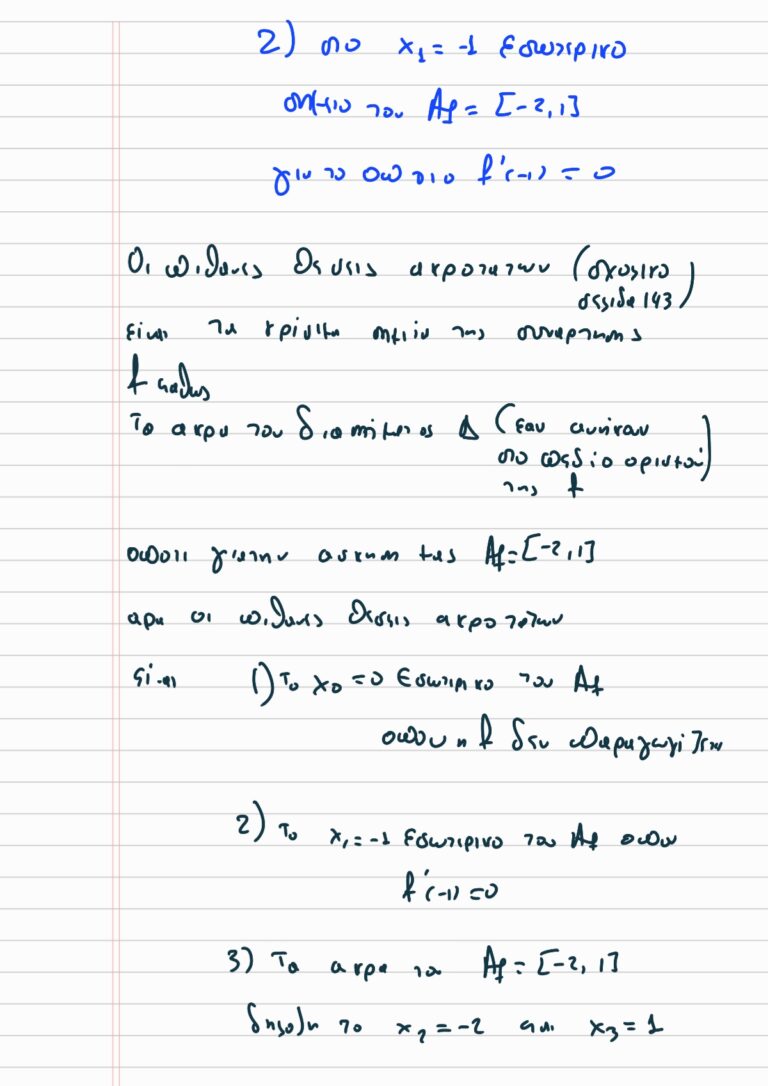 2) στο x₁ = -1 Εσωτερικο
σημειο του Af = [-2,1]
για το οποιο f'(-1) = 0
Οι πιθανες θεσεις ακροτατων (σχολικο
σελιδα 143)
είναι τα κρίσιμα σημεία της συναρτησης
f καθως
Τα ακρα του διαστήματος Δ (εαν ανηκουν
στο πεδίο ορισμού
της f
οποτε για την ασκηση μας Af=[-2,1]
αρα οι πιθανες θεσεις ακροτατων
είναι 1) Το x₀ = 0 Εσωτερικο του Af
οπου η f δεν παραγωγίζεται
2) Το x₁ = -1 Εσωτερικο του Af οπου
f'(-1) = 0
3) Τα ακρα του Af = [-2, 1]
δηλαδη το x₂ = -2 και x₃ = 1